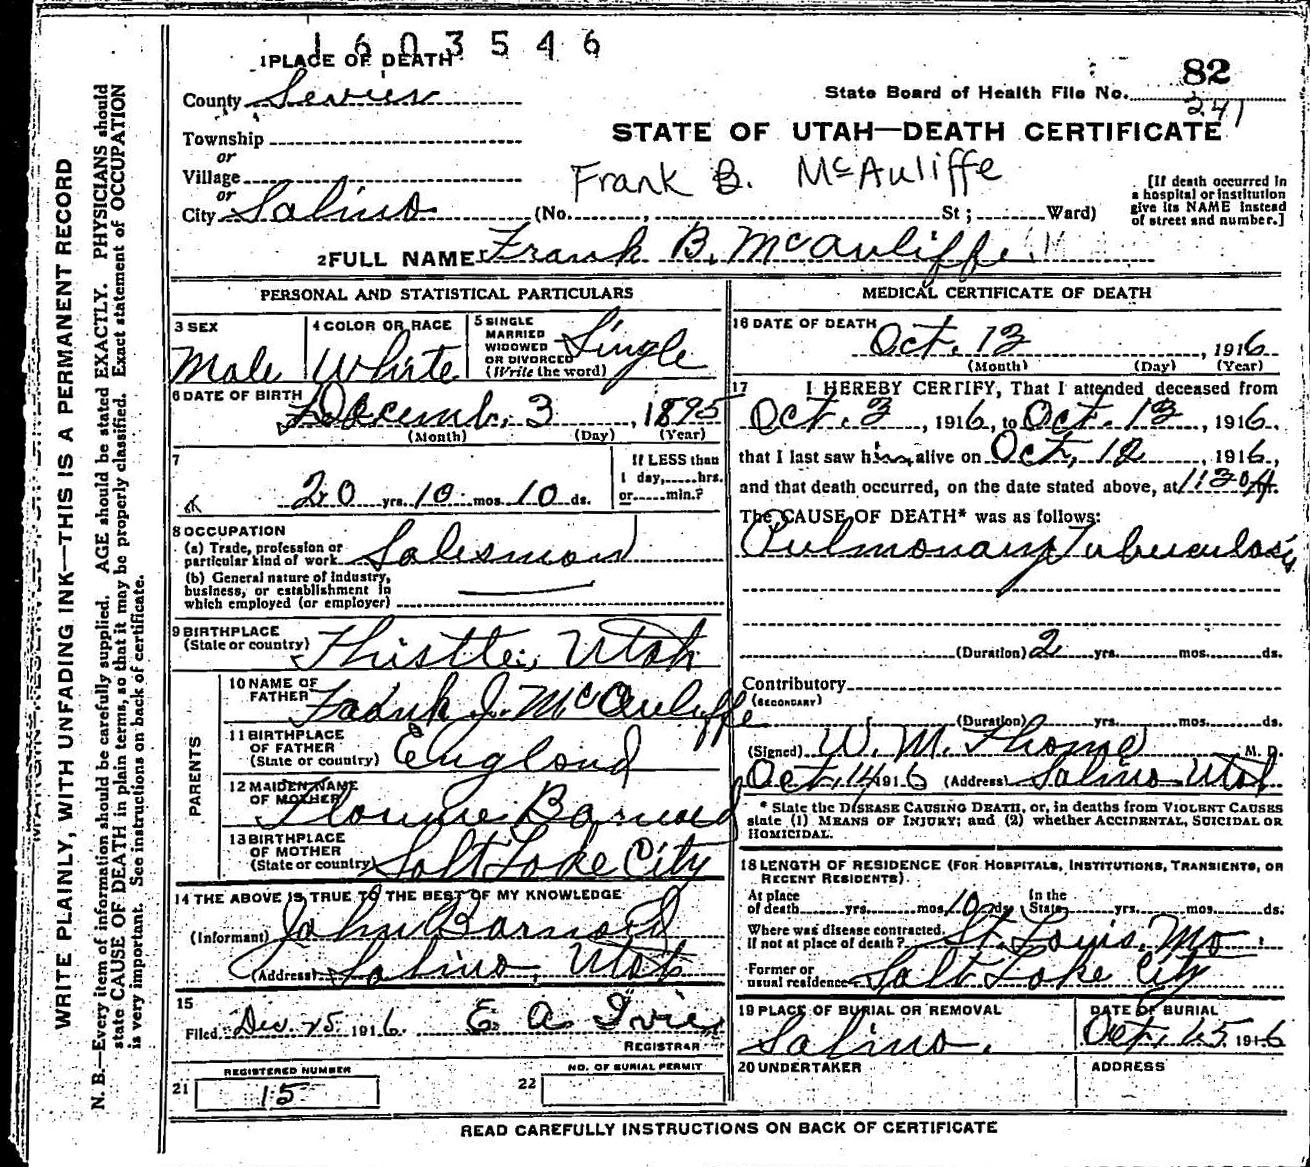 1603546
1 PLACE OF DEATH
82
County Sevier
State Board of Health File No.
241
Township
STATE OF UTAH—DEATH CERTIFICATE
or
Village
Frank B. McAuliffe
or
City Salina (No. , St ; Ward)
[If death occurred in
a hospital or institution
give its NAME instead
of street and number.]
2 FULL NAME Frank B. McAuliffe
PERSONAL AND STATISTICAL PARTICULARS
3 SEX
Male
4 COLOR OR RACE
White
5 SINGLE
MARRIED
WIDOWED
OR DIVORCED
(Write the word)
Single
6 DATE OF BIRTH
Decemb. 3, 1895
(Month) (Day) (Year)
7
20 yrs. 10 mos. 10 ds.
If LESS than
1 day, hrs.
or min.?
8 OCCUPATION
(a) Trade, profession or
particular kind of work Salesman
(b) General nature of industry,
business, or establishment in
which employed (or employer)
9 BIRTHPLACE
(State or country) Thistle, Utah
PARENTS
10 NAME OF
FATHER J. McAuliffe
11 BIRTHPLACE
OF FATHER
(State or country) England
12 MAIDEN NAME
OF MOTHER Barnard
13 BIRTHPLACE
OF MOTHER
(State or country) Salt Lake City
14 THE ABOVE IS TRUE TO THE BEST OF MY KNOWLEDGE
(Informant) John Barnard
(Address) Salina, Utah
15
Filed Dec 15 1916. E. A. Ivie
REGISTRAR
REGISTERED NUMBER
21 15
NO. OF BURIAL PERMIT
22
MEDICAL CERTIFICATE OF DEATH
16 DATE OF DEATH
Oct. 13, 1916
(Month) (Day) (Year)
17 I HEREBY CERTIFY, That I attended deceased from
Oct. 3, 1916, to Oct. 13, 1916,
that I last saw him alive on Oct. 12, 1916,
and that death occurred, on the date stated above, at 11 30 A.
The CAUSE OF DEATH* was as follows:
Pulmonary Tuberculosis
(Duration) 2 yrs. mos. ds.
Contributory
(SECONDARY)
(Duration) yrs. mos. ds.
(Signed) W. M. M. D.
Oct. 14 1916 (Address) Salina Utah
* State the DISEASE CAUSING DEATH, or, in deaths from VIOLENT CAUSES
state (1) MEANS OF INJURY; and (2) whether ACCIDENTAL, SUICIDAL OR
HOMICIDAL.
18 LENGTH OF RESIDENCE (FOR HOSPITALS, INSTITUTIONS, TRANSIENTS, OR
RECENT RESIDENTS).
At place
of death yrs. mos. 10 ds.
In the
State yrs. mos. ds.
Where was disease contracted,
if not at place of death? St. Louis, Mo
Former or
usual residence Salt Lake City
19 PLACE OF BURIAL OR REMOVAL
Salina.
DATE OF BURIAL
Oct. 15 1916
20 UNDERTAKER
ADDRESS
READ CAREFULLY INSTRUCTIONS ON BACK OF CERTIFICATE
WRITE PLAINLY, WITH UNFADING INK—THIS IS A PERMANENT RECORD
N. B.—Every item of information should be carefully supplied. AGE should be stated EXACTLY. PHYSICIANS should
state CAUSE OF DEATH in plain terms, so that it may be properly classified. Exact statement of OCCUPATION
is very important. See instructions on back of certificate.